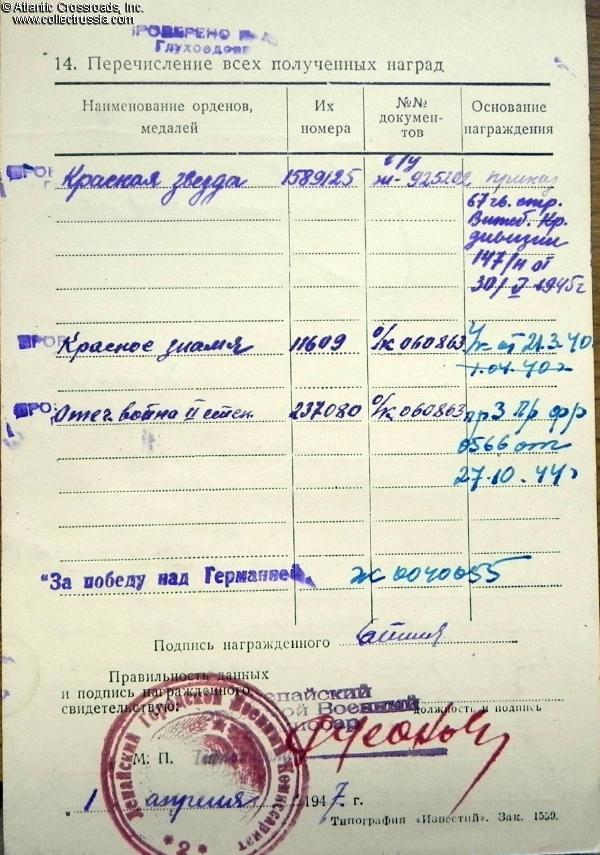 © Atlantic Crossroads, Inc.
www.collectrussia.com
ПРОВЕРЕНО
Глуховцов
14. Перечисление всех полученных наград
Наименование орденов, медалей
Их номера
№№ докумен-тов
Основание награждения
ПРОВ
Красная звезда 1589125 б/у ж-925202 приказ
67 гв. стр.
Витеб. Кр.
дивизии
147/н от
30/V 1945г
ПРОВ
Красное знамя 11609 о/к 060863 Ук от 21.3.40
1.04.40г
ПРО
Отеч. война II степ. 237080 о/к 060863 пр 3 Пр фр
0566 от
27.10.44г
"За победу над Германией" Ж 0040055
Подпись награжденного
Правильность данных
и подпись награжденного
свидетельствую:
Лепайский
Военный
должность и подпись
Лепайский Городской Военный Комиссариат
* 2 *
М. П.
1 апреля 1947 г.
Типография «Известий». Зак. 1559.